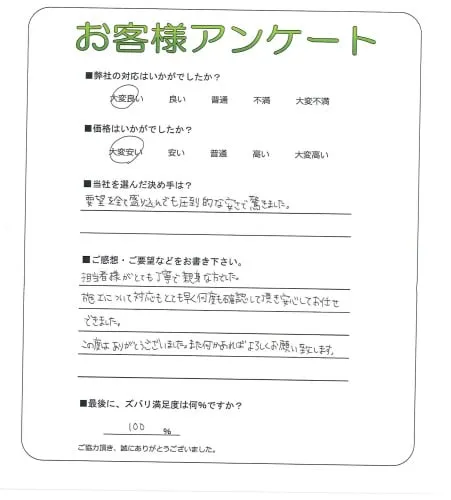 お客様アンケート
■弊社の対応はいかがでしたか？
大変良い　良い　普通　不満　大変不満
■価格はいかがでしたか？
大変安い　安い　普通　高い　大変高い
■当社を選んだ決め手は？
要望を全て盛り込んでも圧倒的な安さで驚きました。
■ご感想・ご要望などをお書き下さい。
担当者様がとても丁寧で親身な方でした。
施工について対応もとても早く何度も確認して頂き安心してお任せ
できました。
この度はありがとうございました。また何かあればよろしくお願い致します。
■最後に、ズバリ満足度は何%ですか？
100 %
ご協力頂き、誠にありがとうございました。